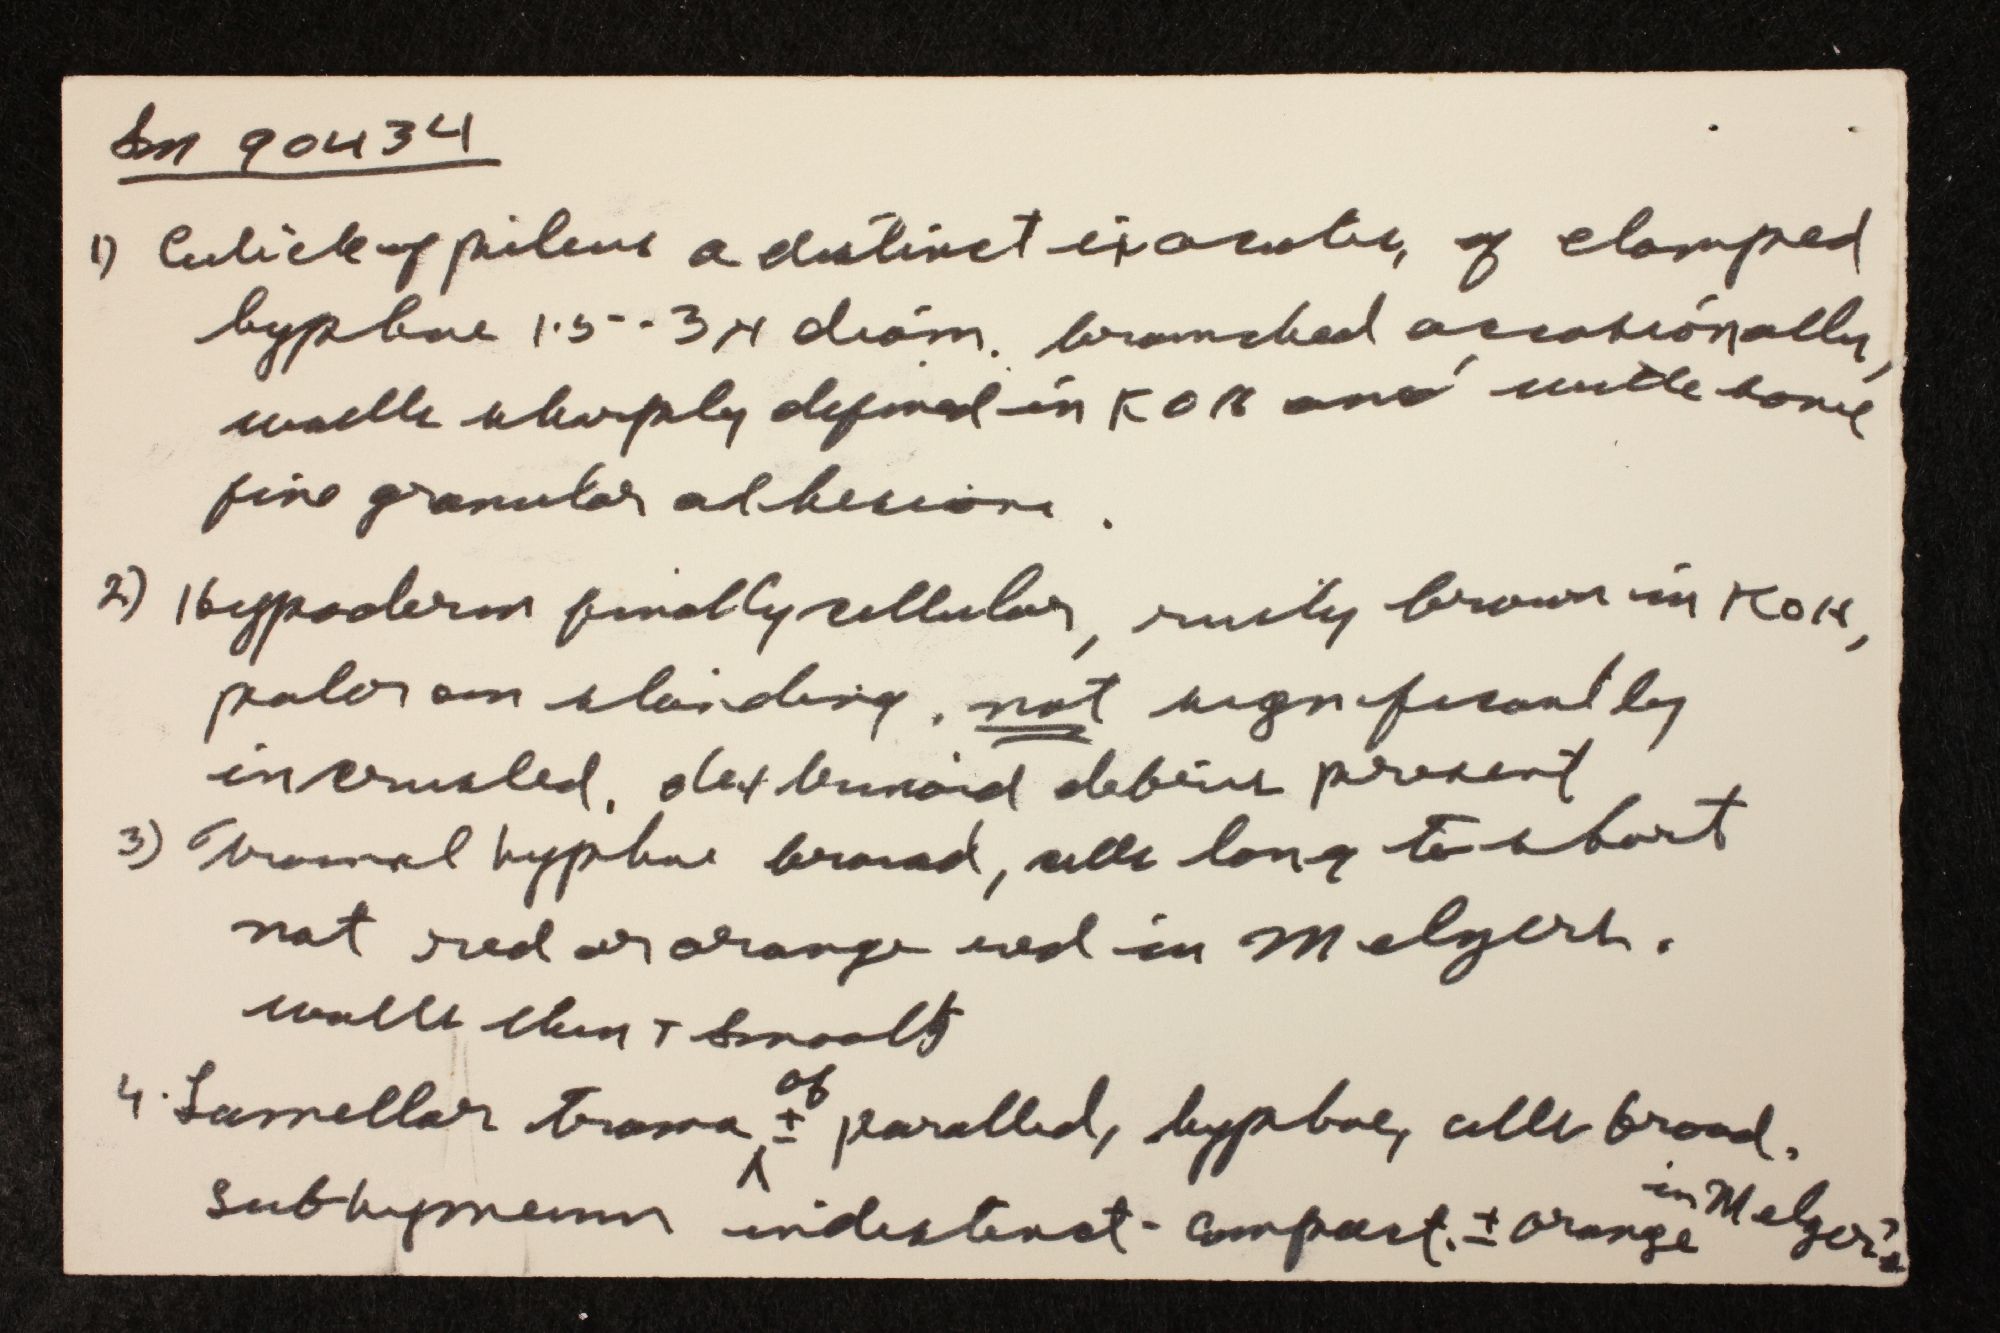 Sm 90434
1) Cuticle of pileus a distinct ixocutis, of clamped
hyphae 1.5-3 µ diam. branched occasionally,
walls sharply defined in KOH and with some
fine granular adhesions.
2) Hypoderm finally cellular, rusty brown in KOH,
paler on standing. not significantly
incrusted. dextrinoid debris present
3) Tramal hyphae broad, cells long to short
not red or orange red in Melzers.
walls thin + smooth
4. Lamellar trama of ± parallel, hyphae, cells broad.
subhymenium indistinct - compact. ± orange in Melzer's